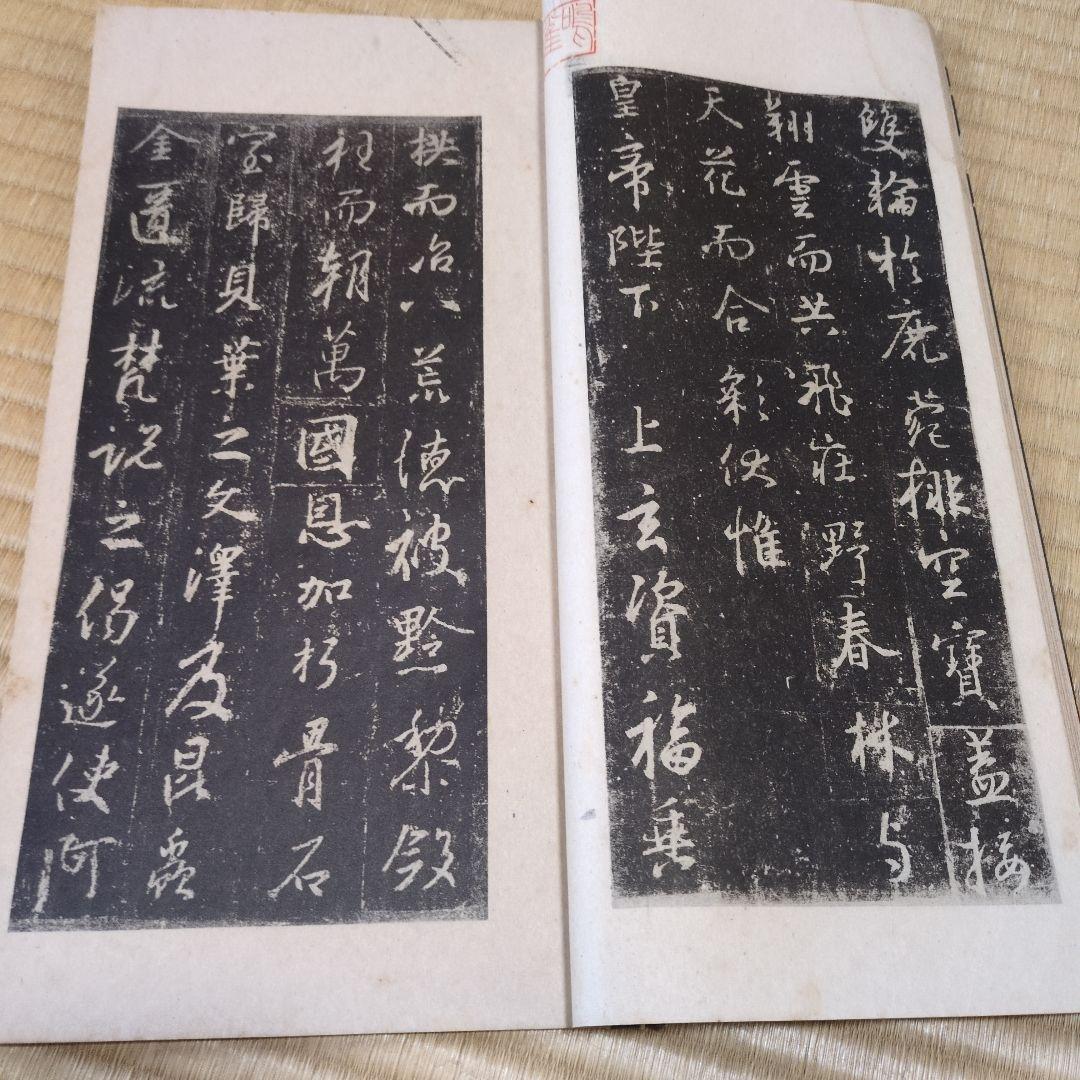 雙輪於鹿菀排空寶蓋接
翔雲而共飛莊野春林與
天花而合彩伏惟
皇帝陛下上玄資福垂
拱而治八荒德被黔黎斂
衽而朝萬國恩加朽骨石
室歸貝葉之文澤及昆蟲
金匱流梵說之偈遂使阿